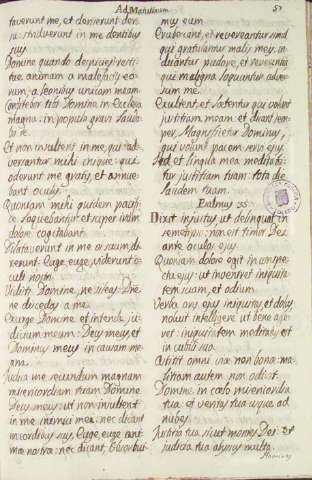 Ad Matutinum
57
taverunt me, et derierunt den
ia: striduerunt in me dentibus
suis
Domine quando despicies resti-
tue animam a malignitate eo-
rum, a leonibus unicam meam.
Confitebor tibi Domine in Ecclesia
magna: in populo gravi lauda-
bo te.
Et non insultent in me, qui ad-
versantur mihi inique: qui
oderunt me gratis, et annue-
bant oculis
Quoniam mihi quidem pacifi-
ce loquebantur et super iram
dolose cogitabant.
Dilataverunt in me os suum, di-
xerunt. Euge, euge, viderunt o-
culi nostri.
Vidisti Domine, ne sileas: Dne
ne discedas a me.
Exurge Domine et intende ju-
dicium meum: Deus meus et
Dominus meus in causam me-
am.
Judica me secundum magnam
misericordiam tuam Domine
Deus meus: et non insultent
in me inimici mei. nec dicant
in cordibus suis, Euge, euge ani-
mae nostrae: nec dicant, Devorabi-
mus eum.
Erubescant, et revereantur simul
qui gratulantur malis meis. in-
duantur pudore, et reverentia
qui maligna loquuntur adver-
sum me.
Exultent, et laetentur qui volunt
justitiam meam: et dicant sem-
per, Magnificetur Dominus,
qui volunt pacem servi ejus.
Sed et lingua mea meditabi-
tur justitiam tuam: tota die
laudem tuam.
Psalmus 35
Dixit injustus ut delinquat in
semetipso: non est timor Dei
ante oculos ejus
Quoniam dolose egit in conspe-
ctu ejus: ut inveniatur iniquita-
tem suam, et odium.
Verba oris ejus iniquitas et dolus
noluit intelligere ut bene age-
ret: iniquitatem meditatus est
in cubili suo.
Astitit omni viae non bonae: ma-
litiam autem non odivit.
Domine, in coelo misericordia
tua et veritas tua usque ad
nubes.
Justitia tua, sicut montes Dei: et
judicia tua abyssus multa.
Homines